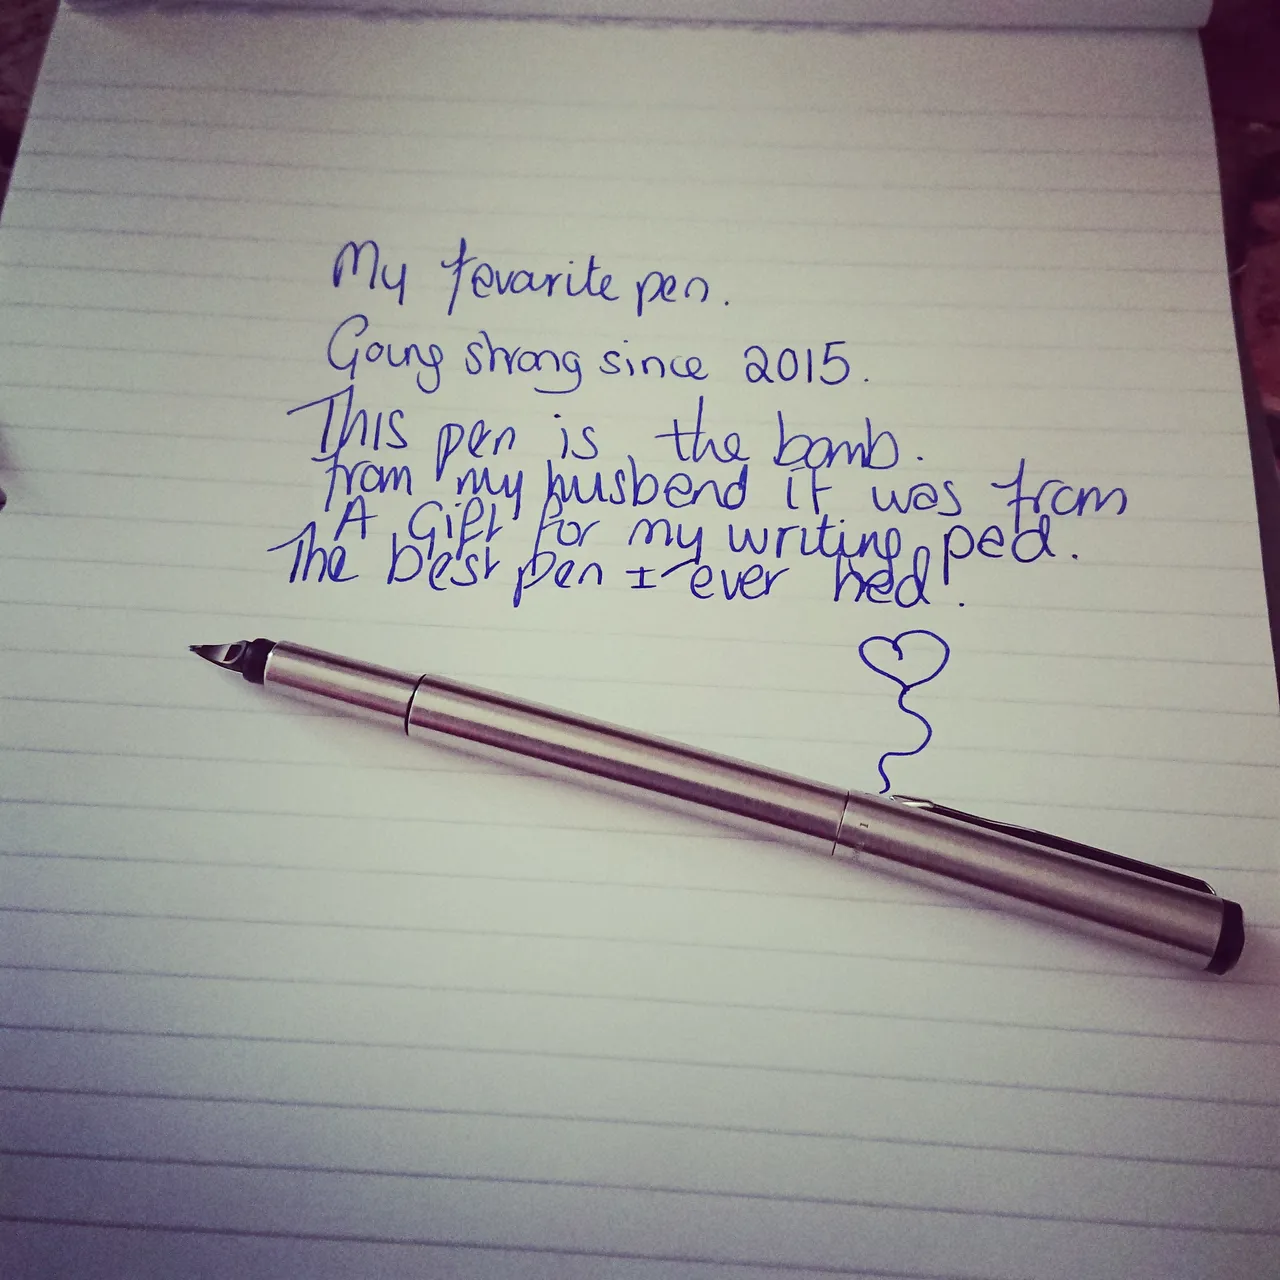 My favarite pen.
Going strong since 2015.
This pen is the bomb.
from my husband it was from
A Gift for my writing pad.
The best pen I ever had.